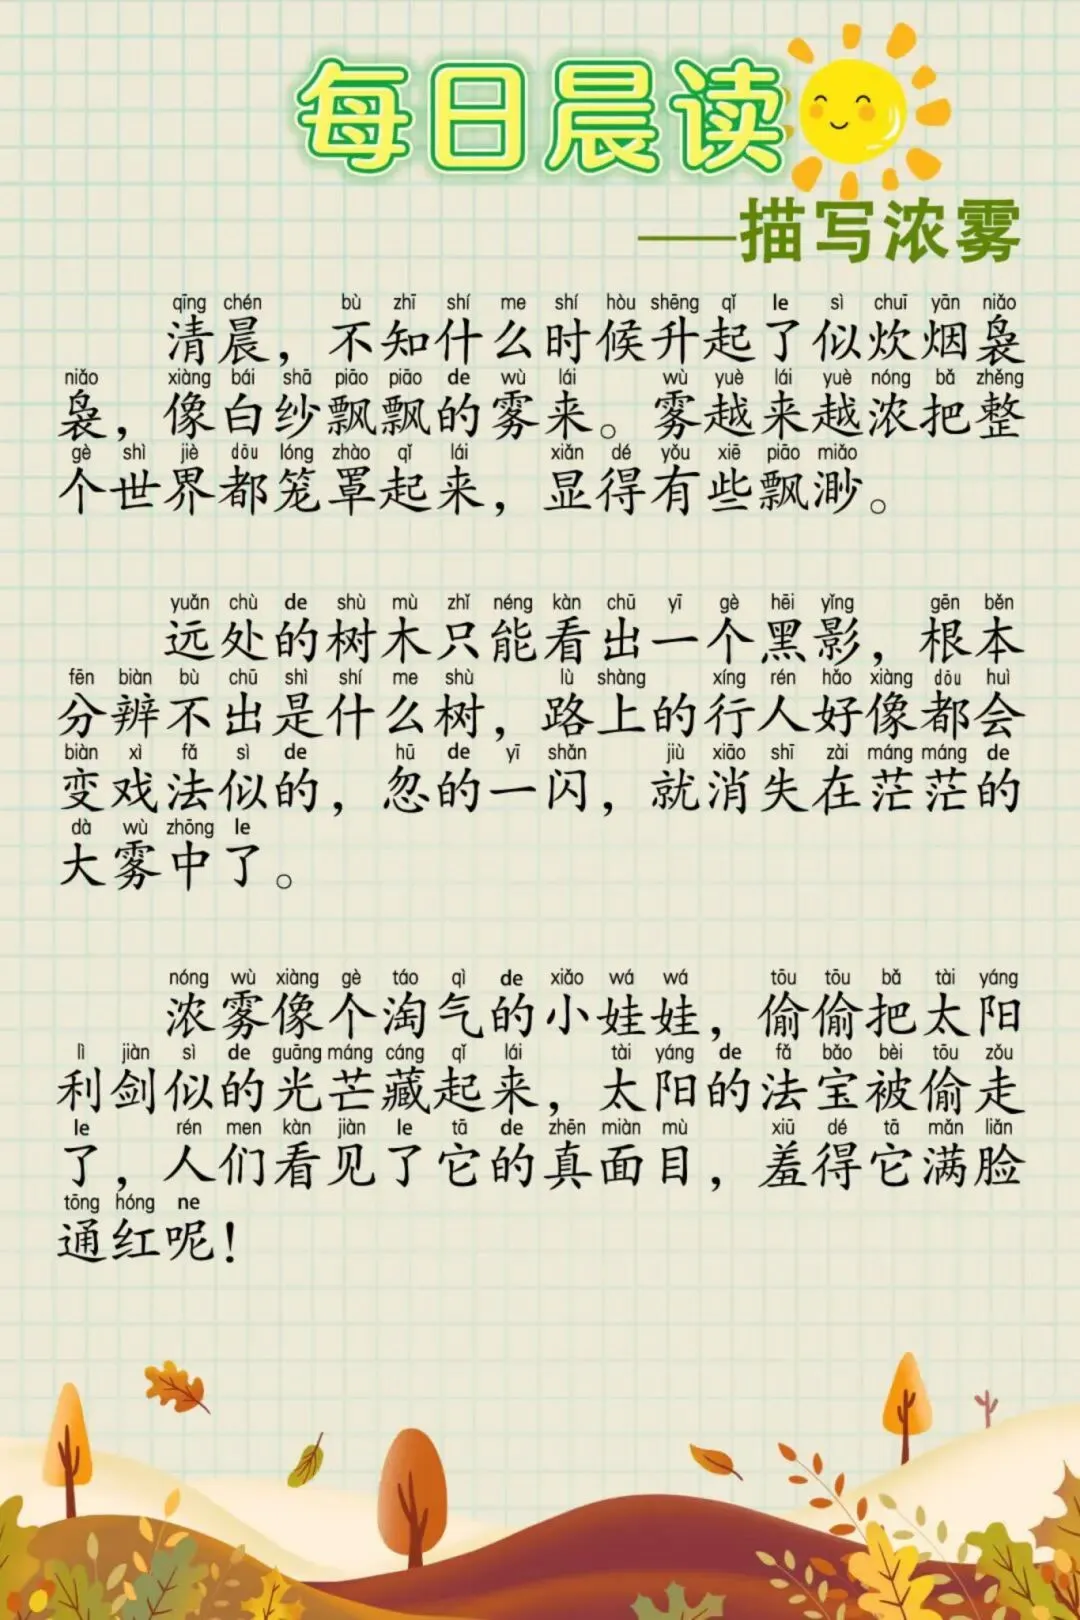 每日晨读
——描写浓雾
qīng chén bù zhī shí me shí hòu shēng qǐ le sì chuī yān niǎo
清晨，不知什么时候升起了似炊烟袅
niǎo xiàng bái shā piāo piāo de wù lái wù yuè lái yuè nóng bǎ zhěng
袅，像白纱飘飘的雾来。雾越来越浓把整
gè shì jiè dōu lóng zhào qǐ lái xiǎn dé yǒu xiē piāo miǎo
个世界都笼罩起来，显得有些飘渺。
yuǎn chù de shù mù zhǐ néng kàn chū yī gè hēi yǐng gēn běn
远处的树木只能看出一个黑影，根本
fēn biàn bù chū shì shí me shù lù shàng xíng rén hǎo xiàng dōu huì
分辨不出是什么树，路上的行人好像都会
biàn xì fǎ sì de hū de yī shǎn jiù xiāo shī zài máng máng de
变戏法似的，忽的一闪，就消失在茫茫的
dà wù zhōng le
大雾中了。
nóng wù xiàng gè táo qì de xiǎo wá wá tōu tōu bǎ tài yáng
浓雾像个淘气的小娃娃，偷偷把太阳
lì jiàn sì de guāng máng cáng qǐ lái tài yáng de fǎ bǎo bèi tōu zǒu
利剑似的光芒藏起来，太阳的法宝被偷走
le rén men kàn jiàn le tā de zhēn miàn mù xiū dé tā mǎn liǎn
了，人们看见了它的真面目，羞得它满脸
tōng hóng ne
通红呢！